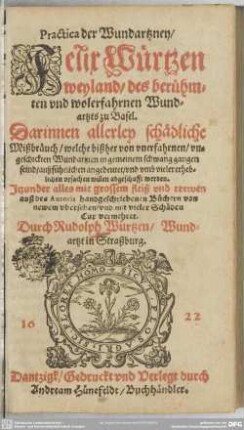 Practica der Wundartzney/
Felix Würtzen
weyland/ des berühm-
ten vnd wolerfahrnen Wund-
artzts zu Basel.
Darinnen allerley schädliche
Mißbräuch/ welche bißher von vnerfahrnen/ vn-
geschickten Wundartzten in gemeinem schwang gangen
seind/ außführlichen angedeutet/ vnd vmb vieler erheb-
lichen vrsachen willen abgeschafft werden.
Jtzunder alles mit grossem fleiß vnd trewen
auß des Autoris handgeschriebenen Büchern von
newem vbersehen/ vnd mit vielen Schäden
Cur vermehret.
Durch Rudolph Würtzen/ Wund-
artzt in Straßburg.
16 22
Dantzigk/ Gedruckt vnd Verlegt durch
Andream Hünefeldt/ Buchhändler.